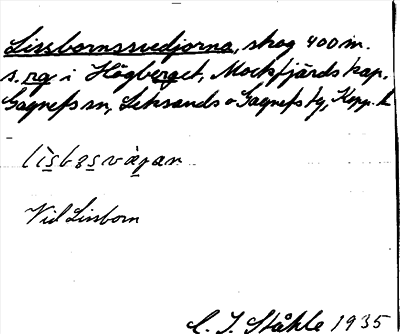 Lissbornssvedjorna, skog 400 m.
s. rg i Högberget, Mockfjärds kap.
Gagnefs sn, Leksands o Gagnefs tg, Kopp. l.
Vid Lissborn
C. I. Ståhle 1935